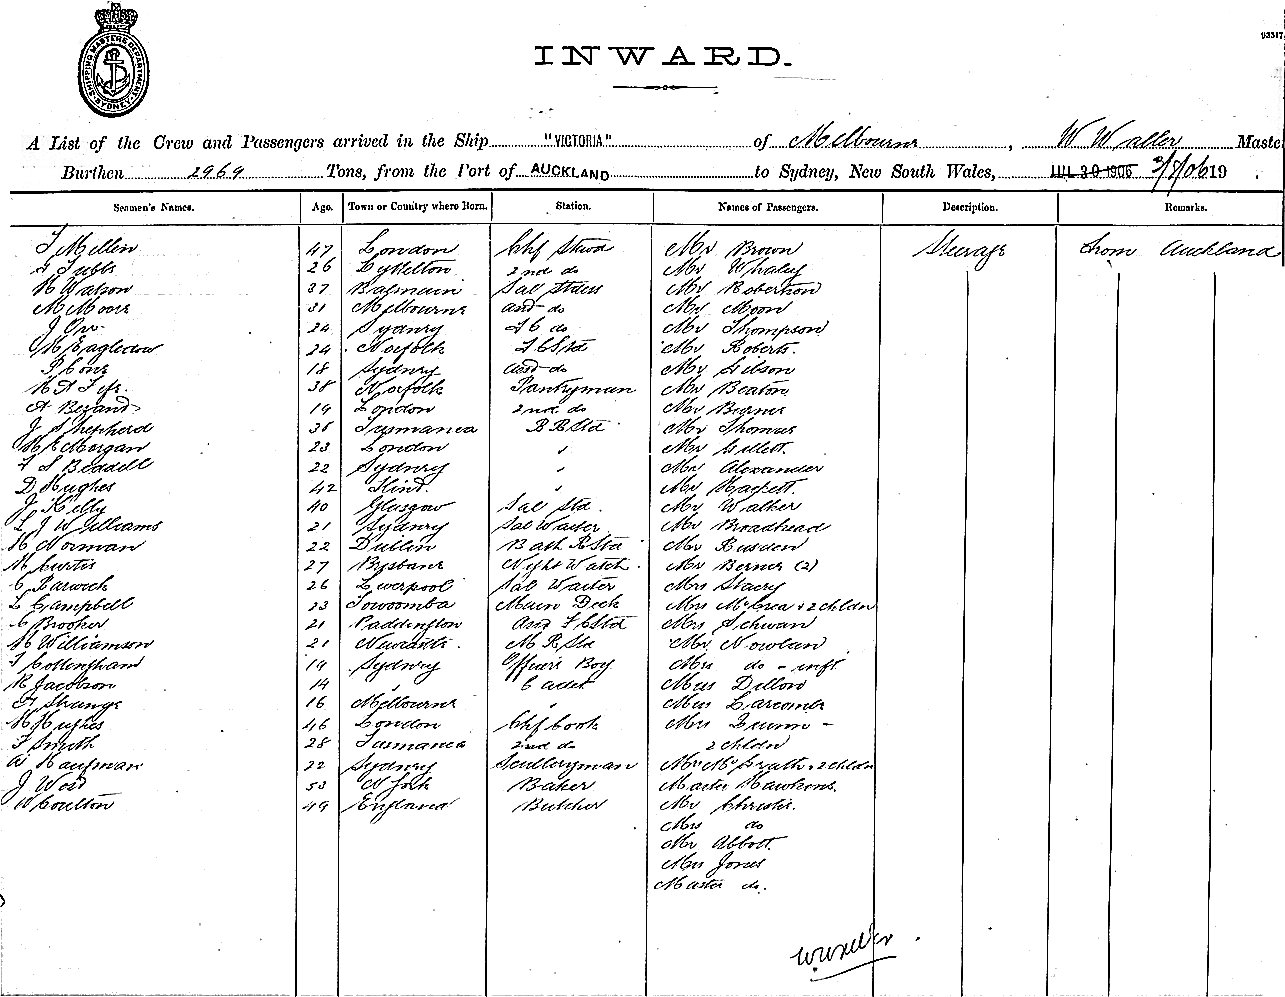 93317
SHIPPING MASTERS DEPARTMENT SYDNEY
INWARD.
A List of the Crew and Passengers arrived in the Ship "VICTORIA" of Melbourne, W Waller Maste
Burthen 2969 Tons, from the Port of AUCKLAND to Sydney, New South Wales, JUL 30 1906 2/8/06 19 .
Seamen's Names. Age. Town or Country where Born. Station. Names of Passengers. Description. Remarks.
T Mellin 47 London Chf Stwd Mr Brown Steerage from Auckland
A Tubbs 26 Lyttelton 2nd do Mr Whaley
H Watson 37 Balmain Sal Stdess Mr Robertson
M Moore 31 Melbourne and do Mr Moon
J Orr 24 Sydney F C do Mr Thompson
M Eagledow 24 Norfolk F C Std Mr Roberts.
P Cone 18 Sydney asst do Mr Gibson
H A Fyfe. 38 Norfolk Pantryman Mr Beaton
A Bezand 19 London 2nd do Mr Berner
J Shepherd 38 Tasmania B R Std Mr Thomas
H E Morgan 23 London " Mr Gillett.
F S Beddell 22 Sydney " Mr Alexander
D Hughes 42 Flind. " Mr Hackett.
J Kelly 40 Glasgow Sal Std. Mr Walker
L J Williams 21 Sydney Sal Waiter Mr Broadhead
H Norman 22 Dublin Bath R Std Mr Rusden
M Curtis 27 Brisbane Night Watch. Mr Berner (2)
C Barwick 26 Liverpool Sal Waiter Mrs Stacey
L Campbell 23 Towoomba Main Deck Mrs McCrea + 2 childn
C Brooker 21 Paddington Asst F C Std Mrs Schwan
H Williamson 21 Newcastle. M R Std Mr Nowlan
T Cottingham 19 Sydney Officers Boy Mrs do - inft
R Jacobson 14 " Cadet Miss Dillon
A Strange 16 Melbourne " Miss Larcomer
H Hughes 46 London Chf Cook Mrs Quinn -
F Smith 28 Tasmania 2nd do 2 childn
A Kaufman 22 Sydney Sculleryman Mr McGrath + 2 childn
J Weir 53 N York Baker Master Hawkins.
W Coulton 49 England Butcher Mr Christie.
Mrs do
Mr Abbott.
Mrs Jones
Master do.
W Waller